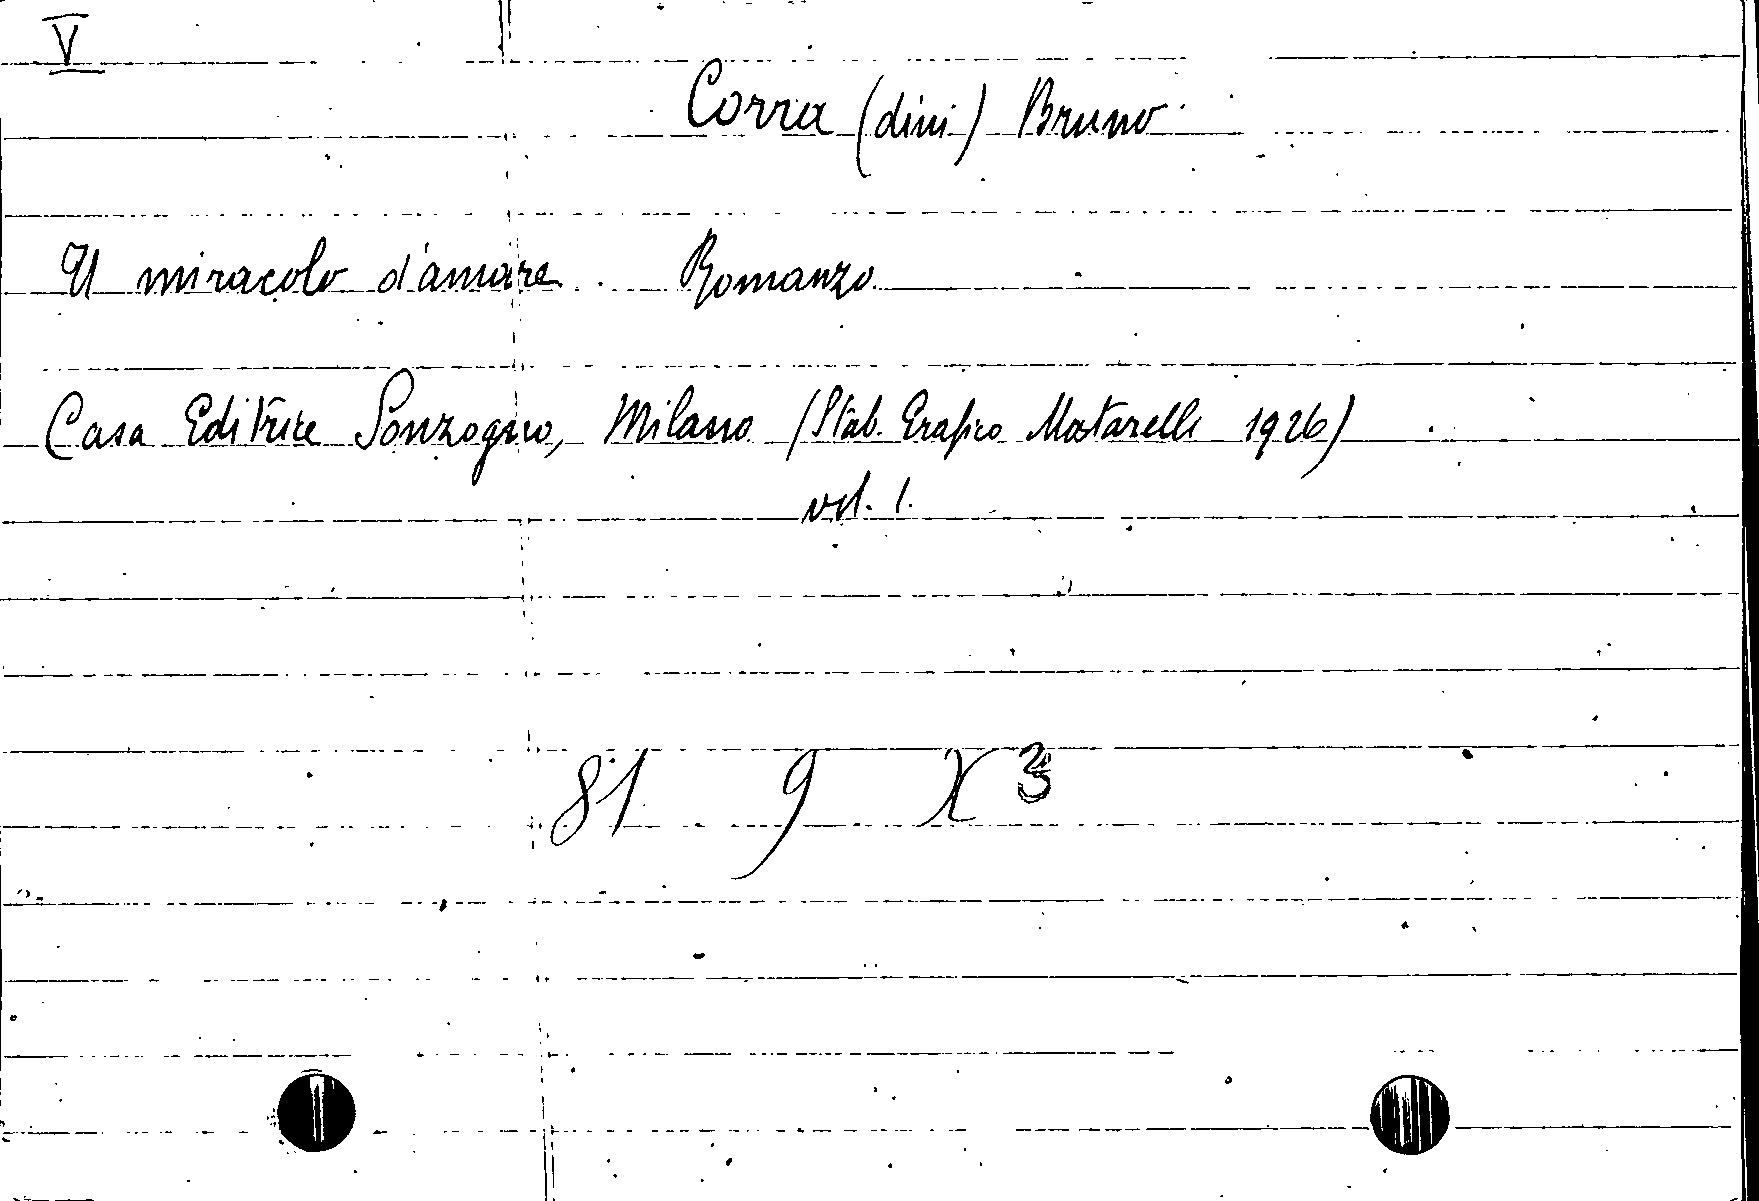 V
Corra (dini) Bruno
Il miracolo d'amore Romanzo
Casa Editrice Sonzogno, Milano (Stab. Grafico Matarelli 1926)
vol. 1.
81 9 X 3